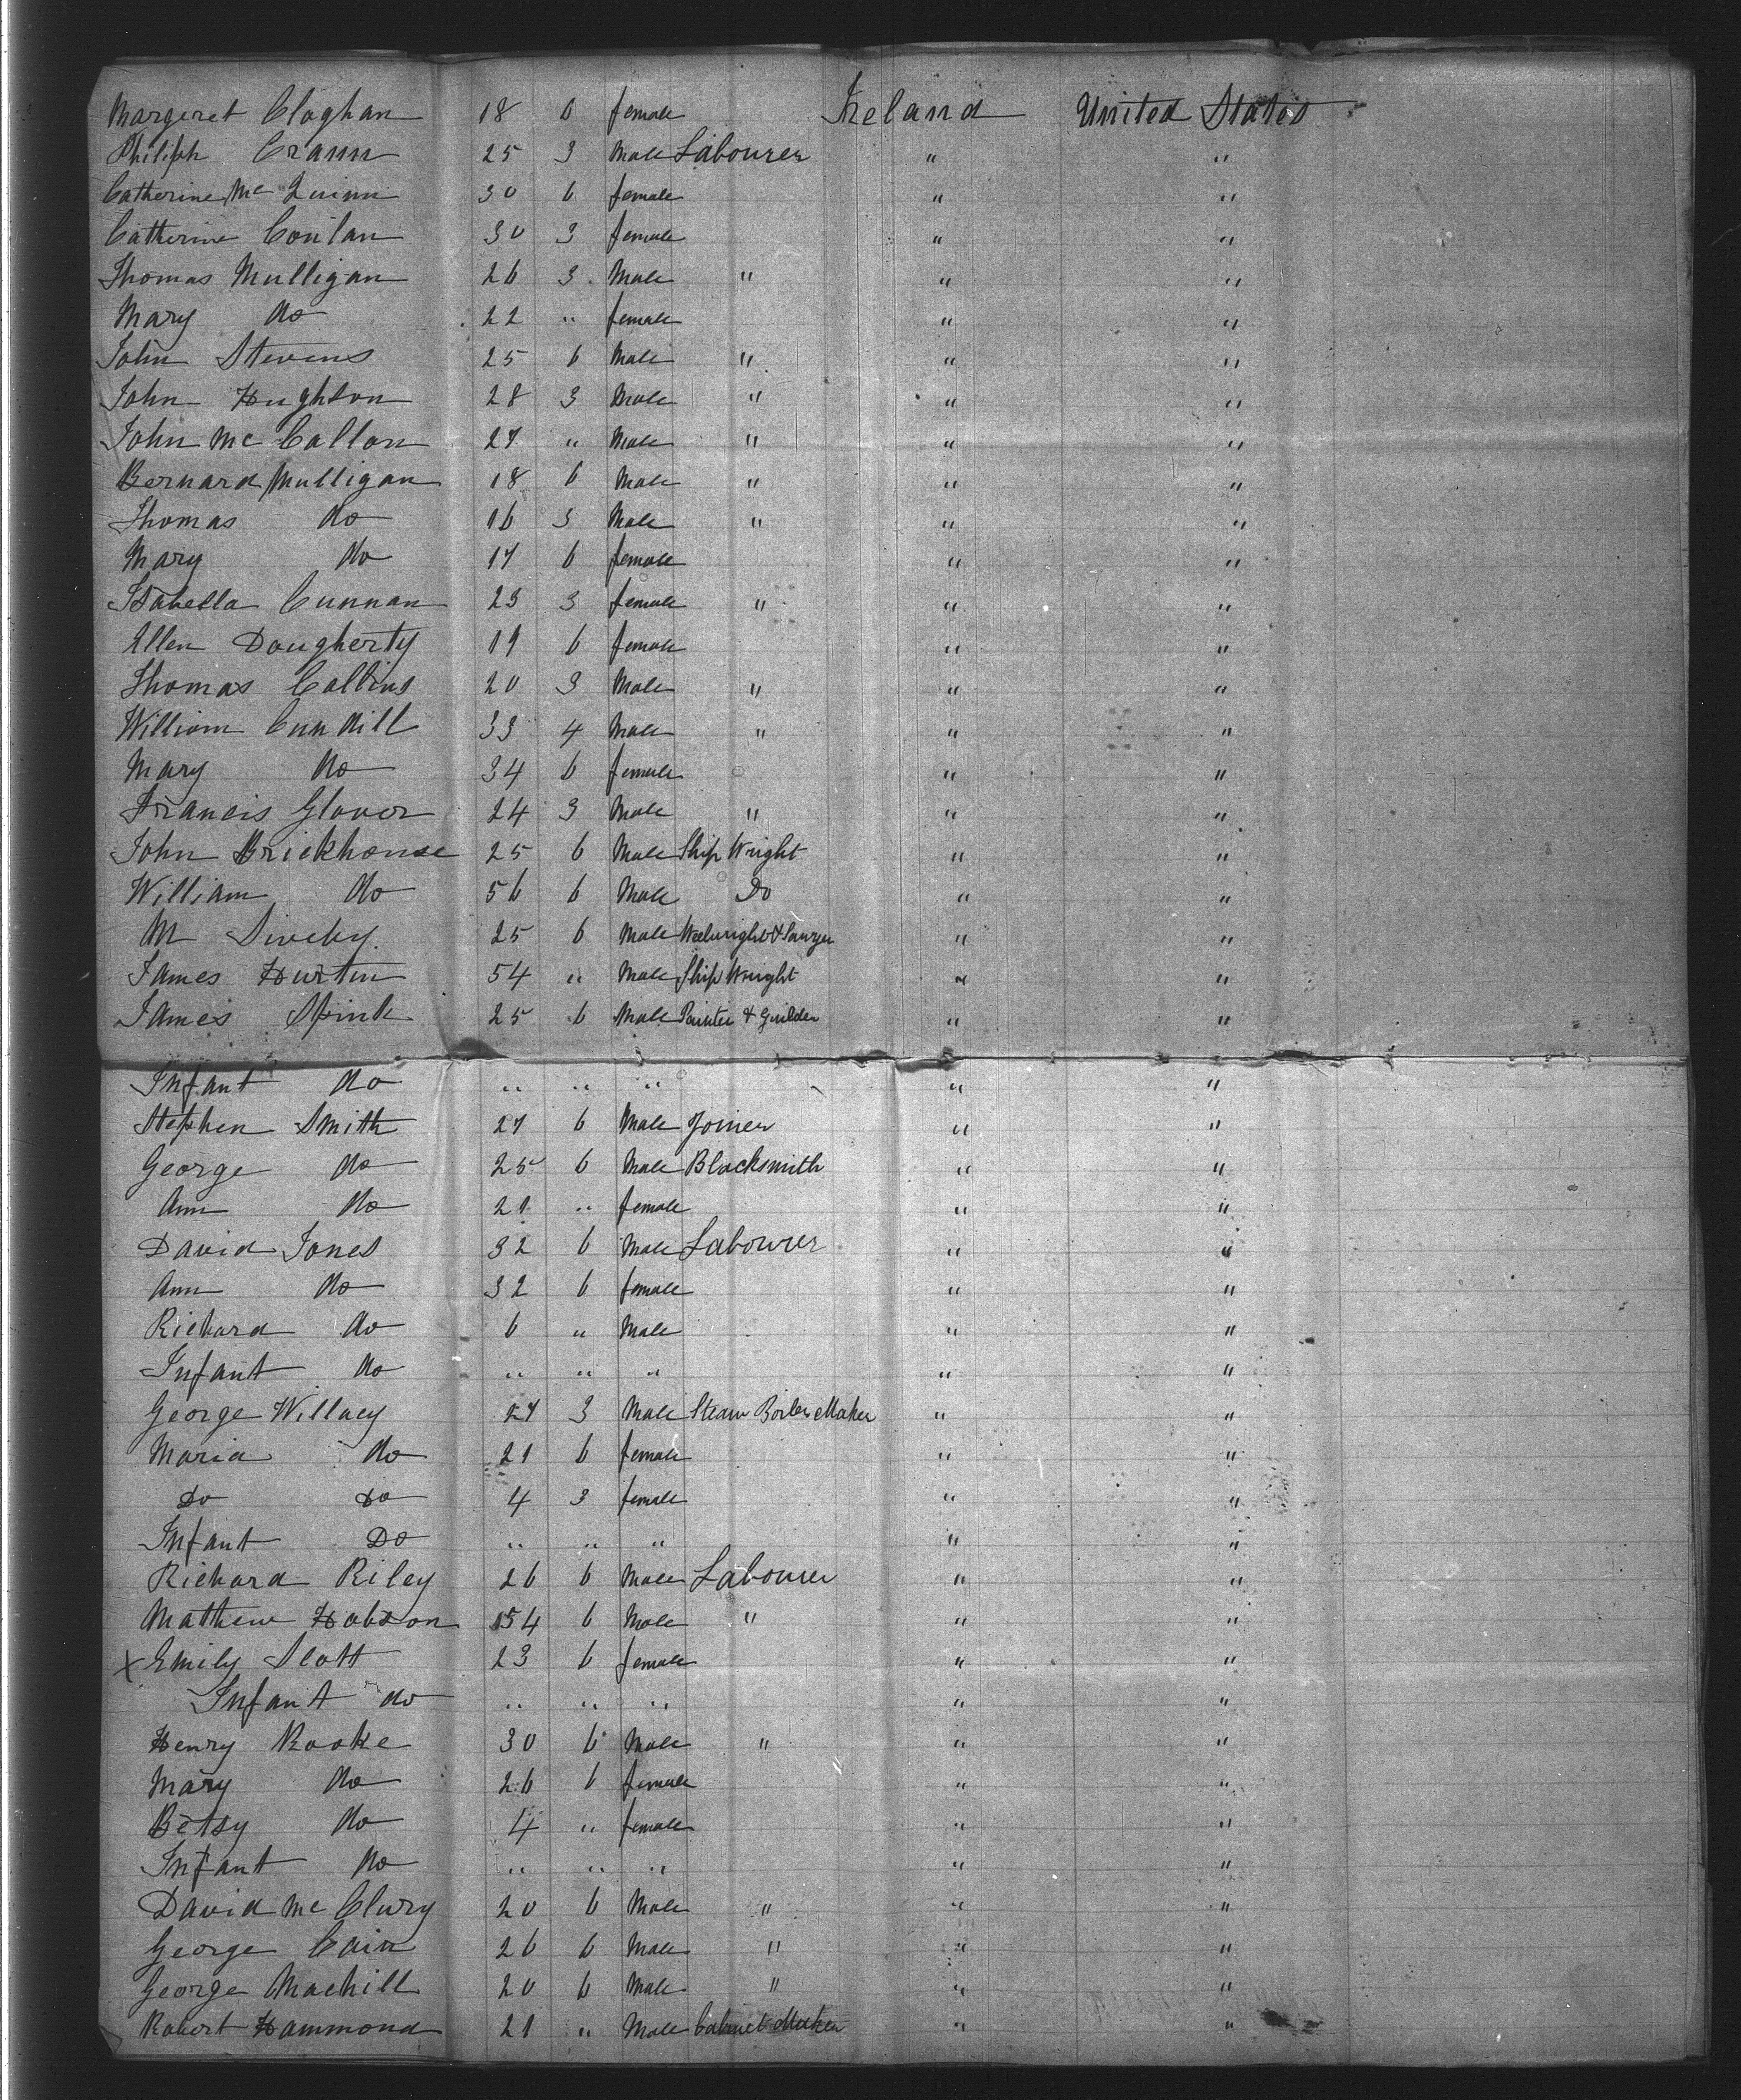 Margeret Cloghan 18 6 female Ireland United States
Philiph Crann 25 3 Male Labourer " "
Catherine Mc Quinn 30 6 female " "
Catherine Conlan 30 3 female " "
Thomas Mulligan 26 3 Male " " "
Mary do 22 " female " "
John Stevens 25 6 Male " " "
John Hughson 28 3 Male " " "
John Mc Callon 27 " Male " " "
Bernard Mulligan 18 6 Male " " "
Thomas do 16 3 Male " " "
Mary do 17 6 female " "
Isabella Cunnan 23 3 female " " "
Ellen Dougherty 19 6 female " "
Thomas Collins 20 3 Male " " "
William Cundill 33 4 Male " " "
Mary do 34 6 female " "
Francis Glover 24 3 Male " " "
John Brickhouse 25 6 Male Ship Wright " "
William do 56 6 Male Do " "
M 25 6 Male Weelwright & Sawyer " "
James Hurtin 54 " Male Ship Wright " "
James Spink 25 6 Male Painter & Guilder " "
Infant do " " " " "
Stephen Smith 27 6 Male Joiner " "
George do 25 6 Male Blacksmith " "
Ann do 21 " female " "
David Jones 32 6 Male Labourer " "
Ann do 32 6 female " "
Richard do 6 " Male " "
Infant do " " " " "
George Willacy 27 3 Male Steam Boiler Maker " "
Maria do 21 6 female " "
Do Do 4 3 female " "
Infant Do " " " " "
Richard Riley 26 6 Male Labourer " "
Mathew Hobson 54 6 Male " " "
x Emily Scott 23 6 female " "
Infant do " " " " "
Henry Rooke 30 6 Male " " "
Mary do 26 6 female " "
Betsy do 4 " female " "
Infant do " " " " "
David Mc Clury 20 6 Male " " "
George Cain 26 6 Male " " "
George Machill 20 6 Male " " "
Robert Hammond 21 " Male Cabinet Maker " "